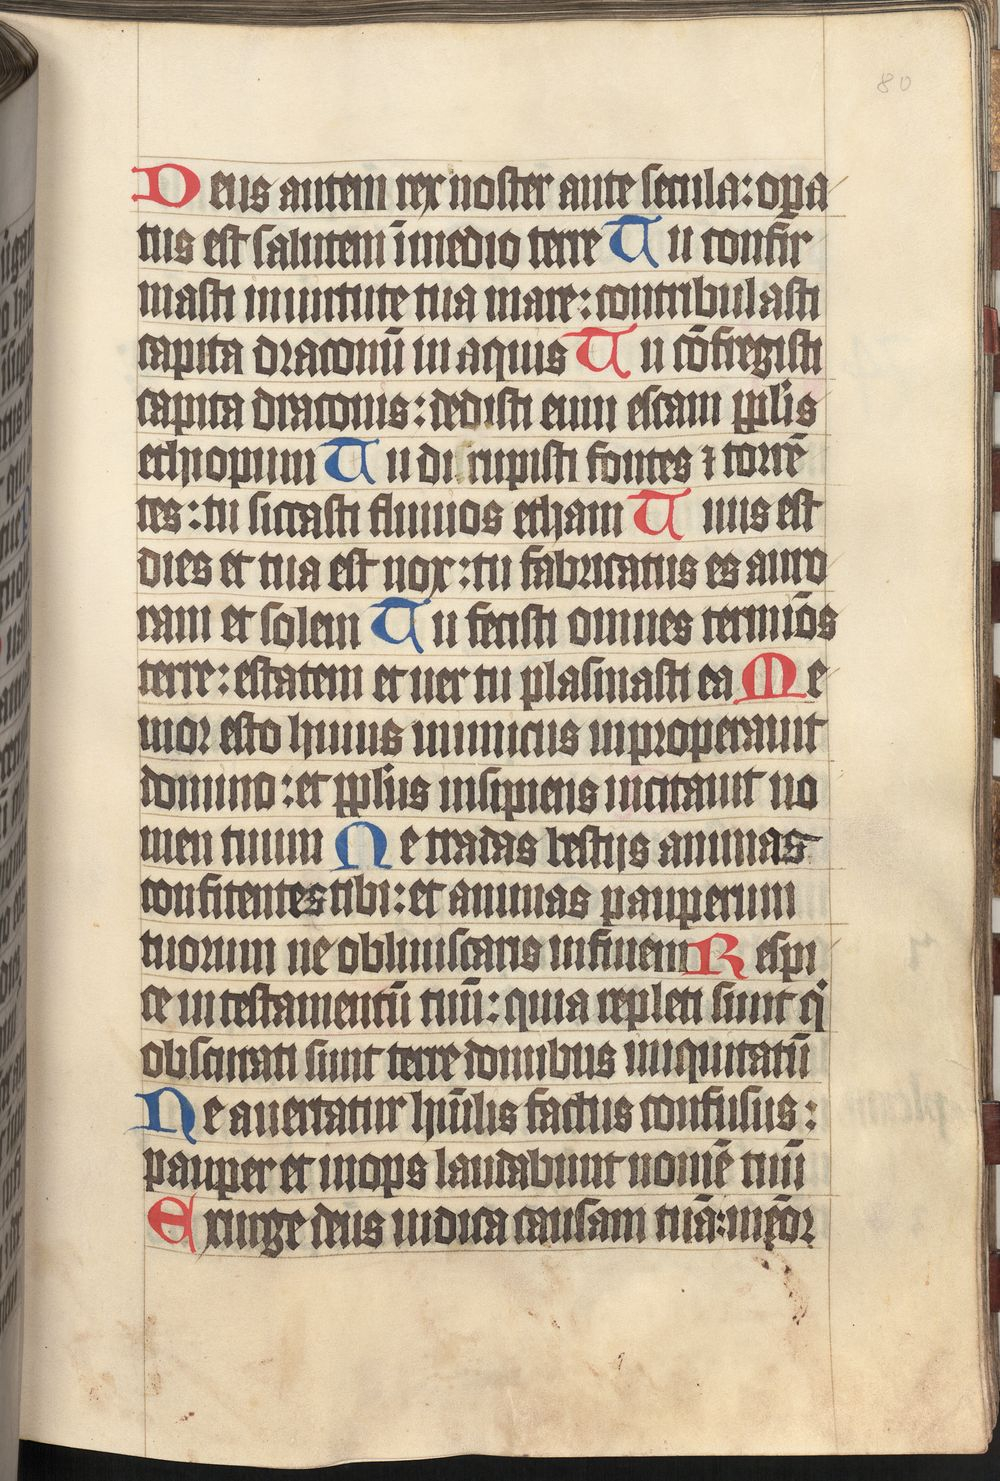 80
Deus autem rex noster ante secula: opa
tus est salutem ī medio terre Tu confir
masti in uirtute tua mare: contribulasti
capita draconū in aquis Tu cōfregisti
capita draconis: dedisti eum escam pplis
ethiopum Tu disrupisti fontes ⁊ torrē
tes: tu siccasti fluuios etham Tuus est
dies et tua est nox: tu fabricatus es auro
ram et solem Tu fecisti omnes termiōs
terre: estatem et uer tu plasmasti ea Me
mor esto huius inimicus inproperauit
domino: et pplus insipiens incitauit no
men tuum Ne tradas bestijs animas
confitentes tibi: et animas pauperum
tuorum ne obliuiscaris in finem Respi
ce in testamentū tuū: quia repleti sunt q̇
obscurati sunt terre domibus iniquitatū
Ne auertatur hūilis factus confusus:
pauper et inops laudabunt nomē tuū
Exurge deus iudica causam tuā: